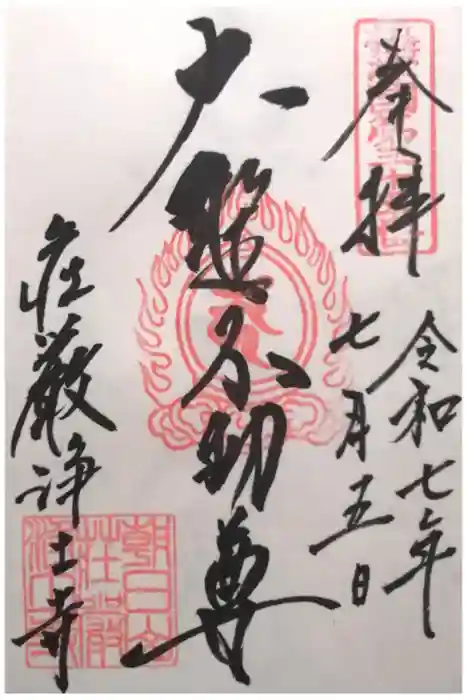 奉拝
令和七年
七月五日
大聖不動尊
荘厳浄土寺
朝日山
荘厳
浄土寺